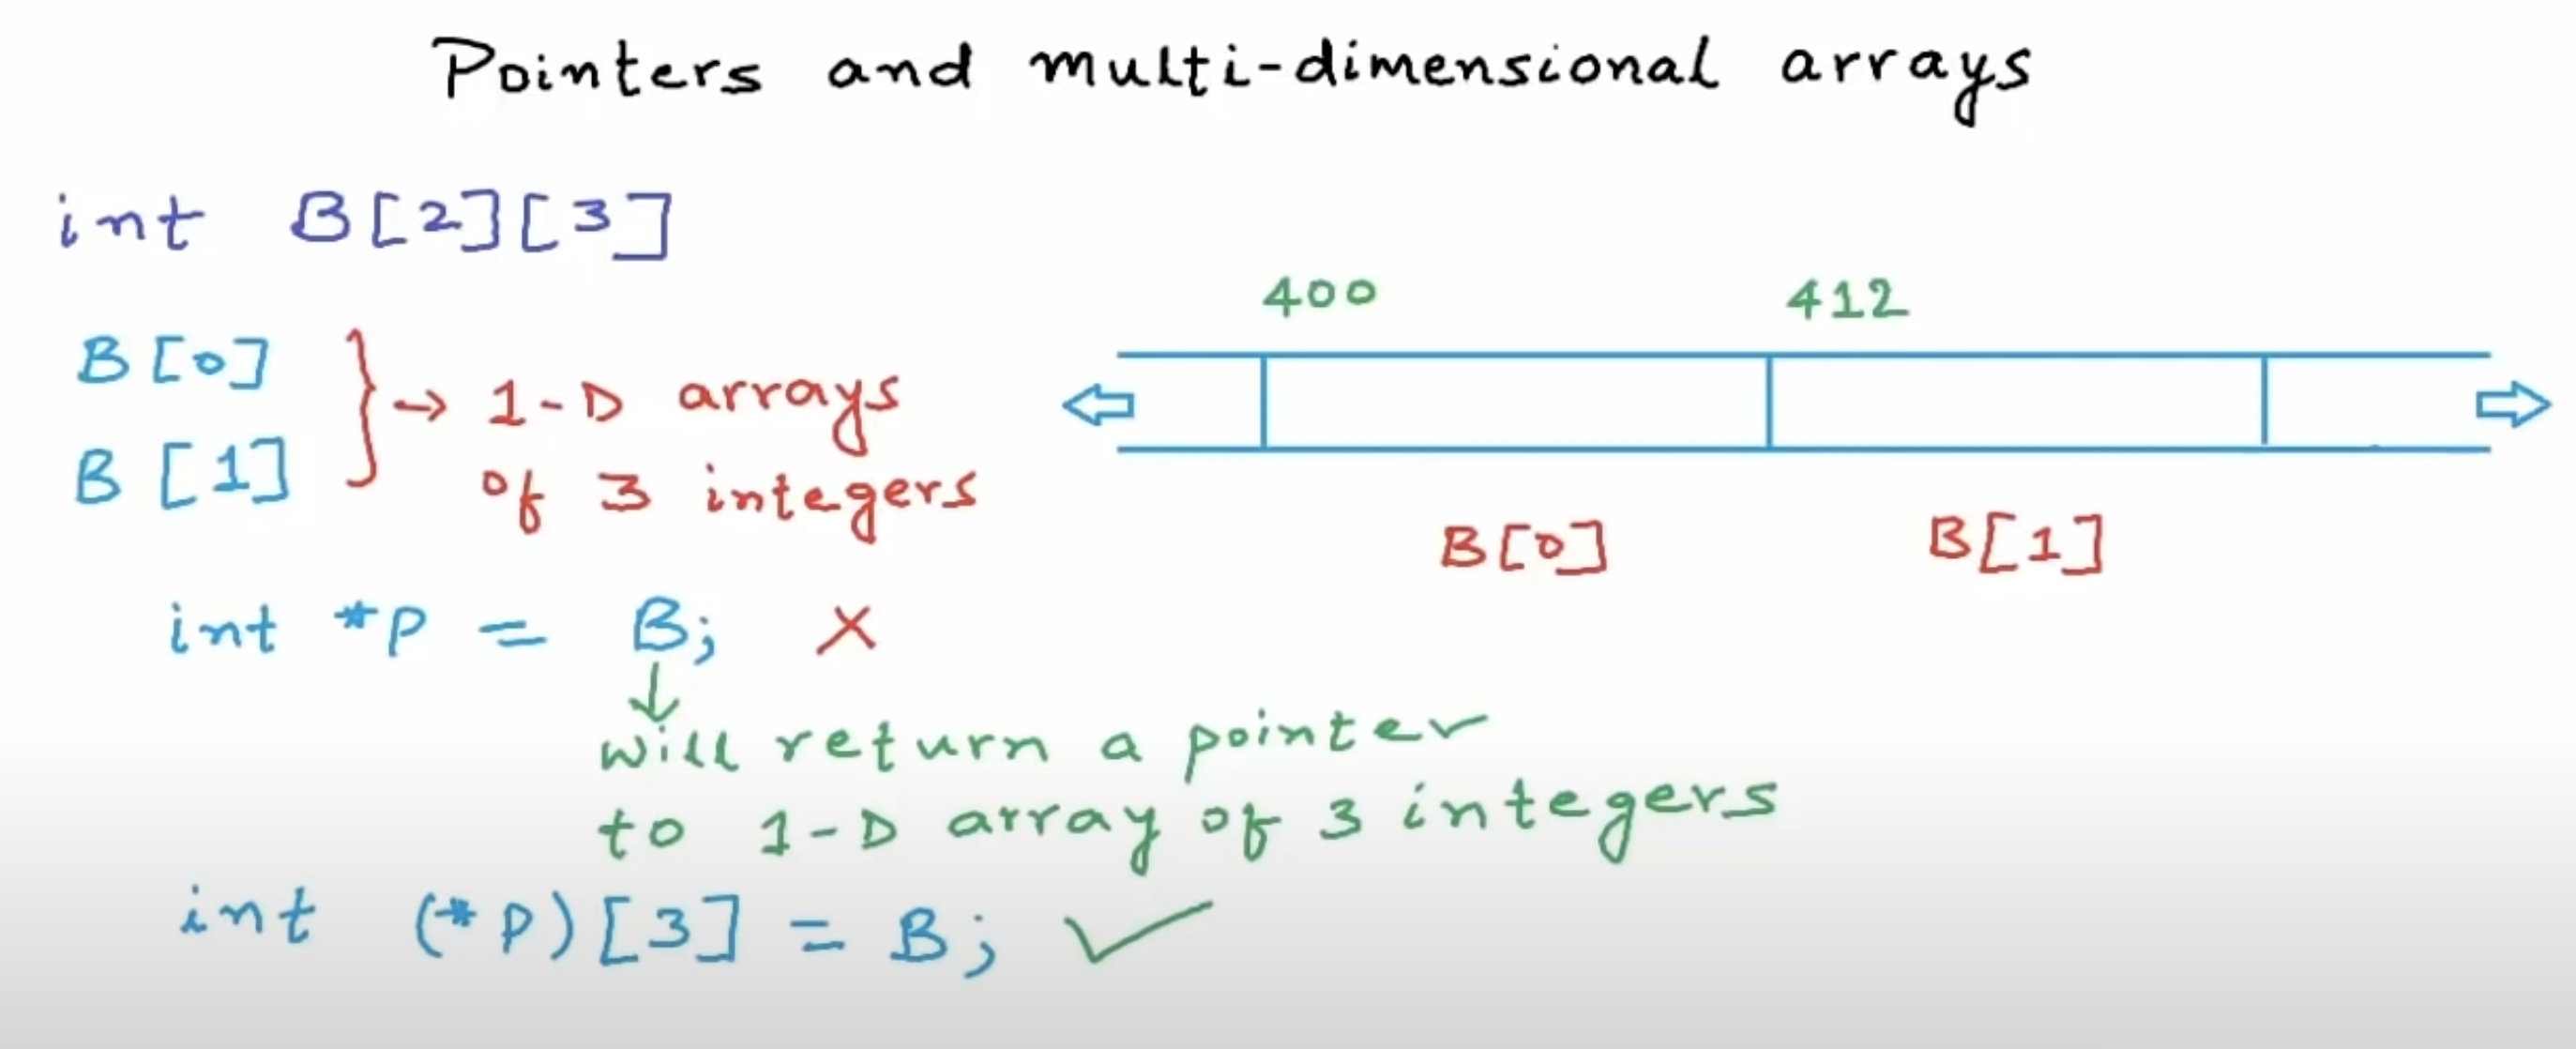 Pointers and multi-dimensional arrays
int B[2][3]
400 412
B[0]
B[1]
→ 1-D arrays
of 3 integers
B[0] B[1]
int *p = B; X
↓
will return a pointer
to 1-D array of 3 integers
int (*p)[3] = B; ✓